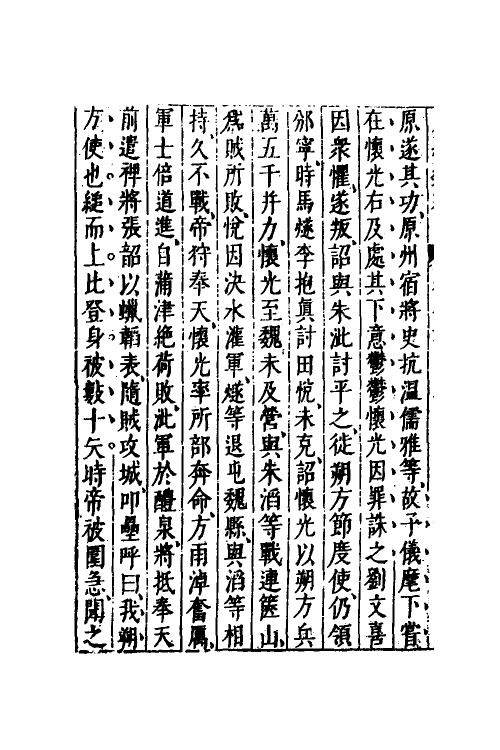 原遂其功原州宿將史抗溫儒雅等故子儀麾下嘗
在懷光右及處其下意鬱鬱懷光因罪誅之劉文喜
因衆懼遂叛詔與朱泚討平之徒朔方節度使仍領
邠寧時馬燧李抱眞討田悅未克詔懷光以朔方兵
萬五千幷力懷光至魏未及營與朱滔等戰連篋山
爲賊所敗悅因決水灌軍燧等退屯魏縣與滔等相
持久不戰帝狩奉天懷光率所部奔命方雨淖奮厲
軍士倍道進自蒲津絶荷敗泚軍於醴泉將抵奉天
前遣裨將張韶以蠟韜表隨賊攻城叩壘呼曰我朔
方使也縋而上比登身被數十矢時帝被圍急聞之